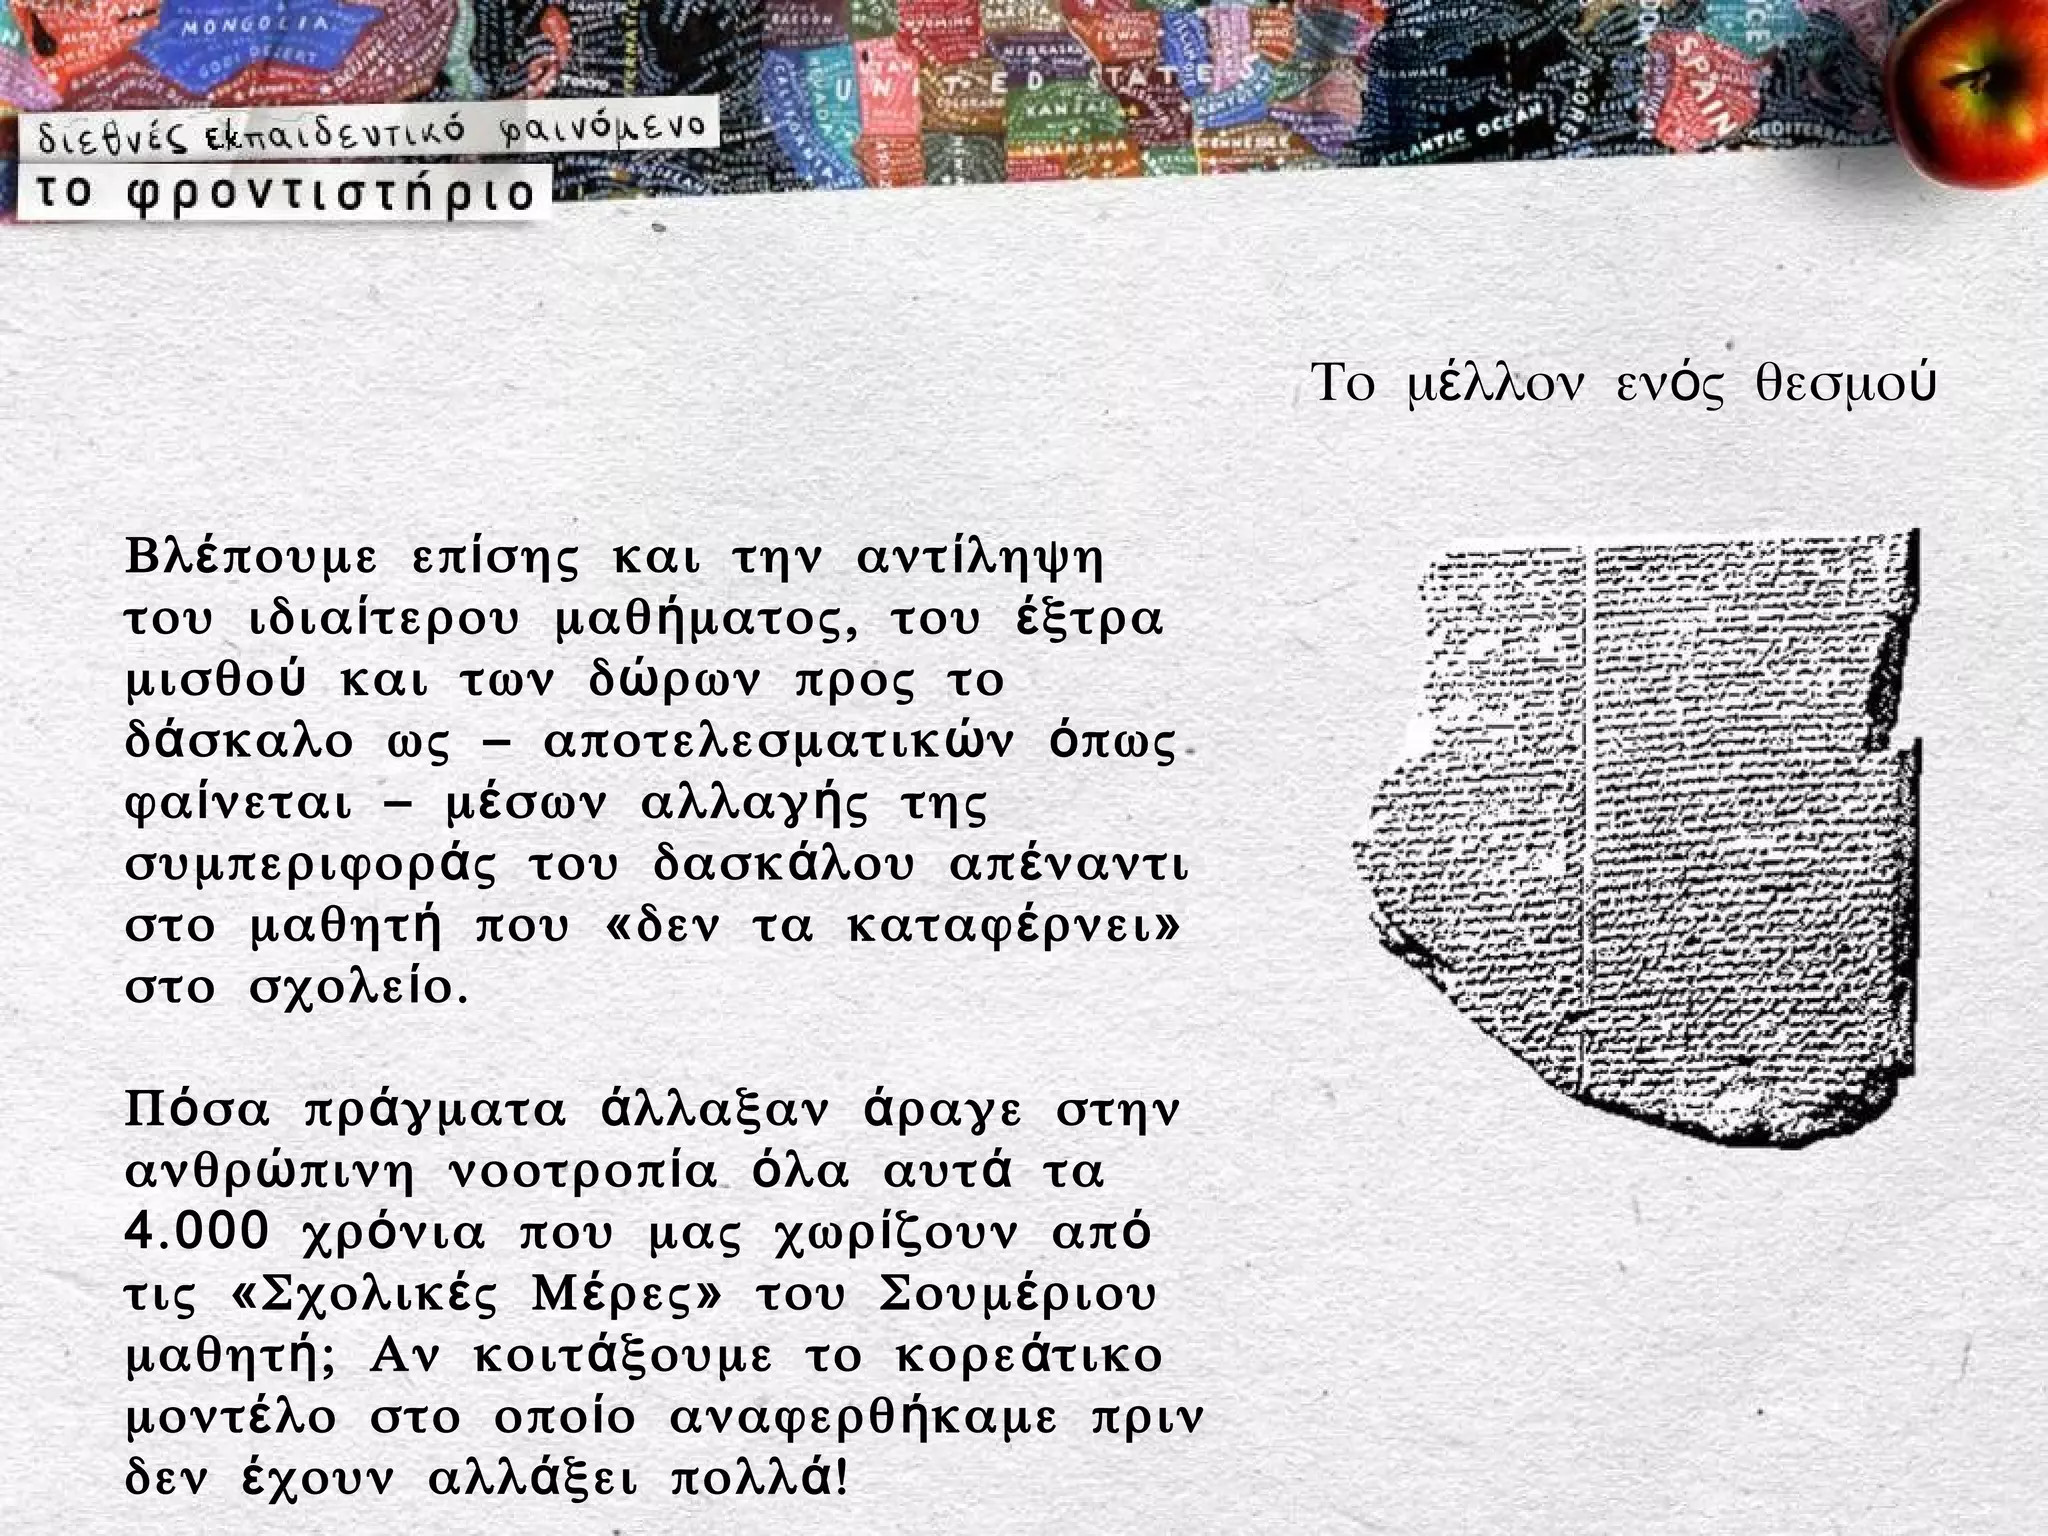 MONGOLIA
GOBI DESERT
TOKYO
OREGON
WYOMING
DAKOTA
IOWA
NEBRASKA
UNITED STATES
NEVADA
CALIFORNIA
COLORADO
KANSAS
KENTUCKY
OHIO
OKLAHOMA
TENNESSEE
DELAWARE
ATLANTIC OCEAN
AZORES
SPAIN
διεθνές εκπαιδευτικό φαινόμενο
το φροντιστήριο
Το μέλλον ενός θεσμού
Βλέπουμε επίσης και την αντίληψη
του ιδιαίτερου μαθήματος, του έξτρα
μισθού και των δώρων προς το
δάσκαλο ως – αποτελεσματικών όπως
φαίνεται – μέσων αλλαγής της
συμπεριφοράς του δασκάλου απέναντι
στο μαθητή που «δεν τα καταφέρνει»
στο σχολείο.
Πόσα πράγματα άλλαξαν άραγε στην
ανθρώπινη νοοτροπία όλα αυτά τα
4.000 χρόνια που μας χωρίζουν από
τις «Σχολικές Μέρες» του Σουμέριου
μαθητή; Αν κοιτάξουμε το κορεάτικο
μοντέλο στο οποίο αναφερθήκαμε πριν
δεν έχουν αλλάξει πολλά!